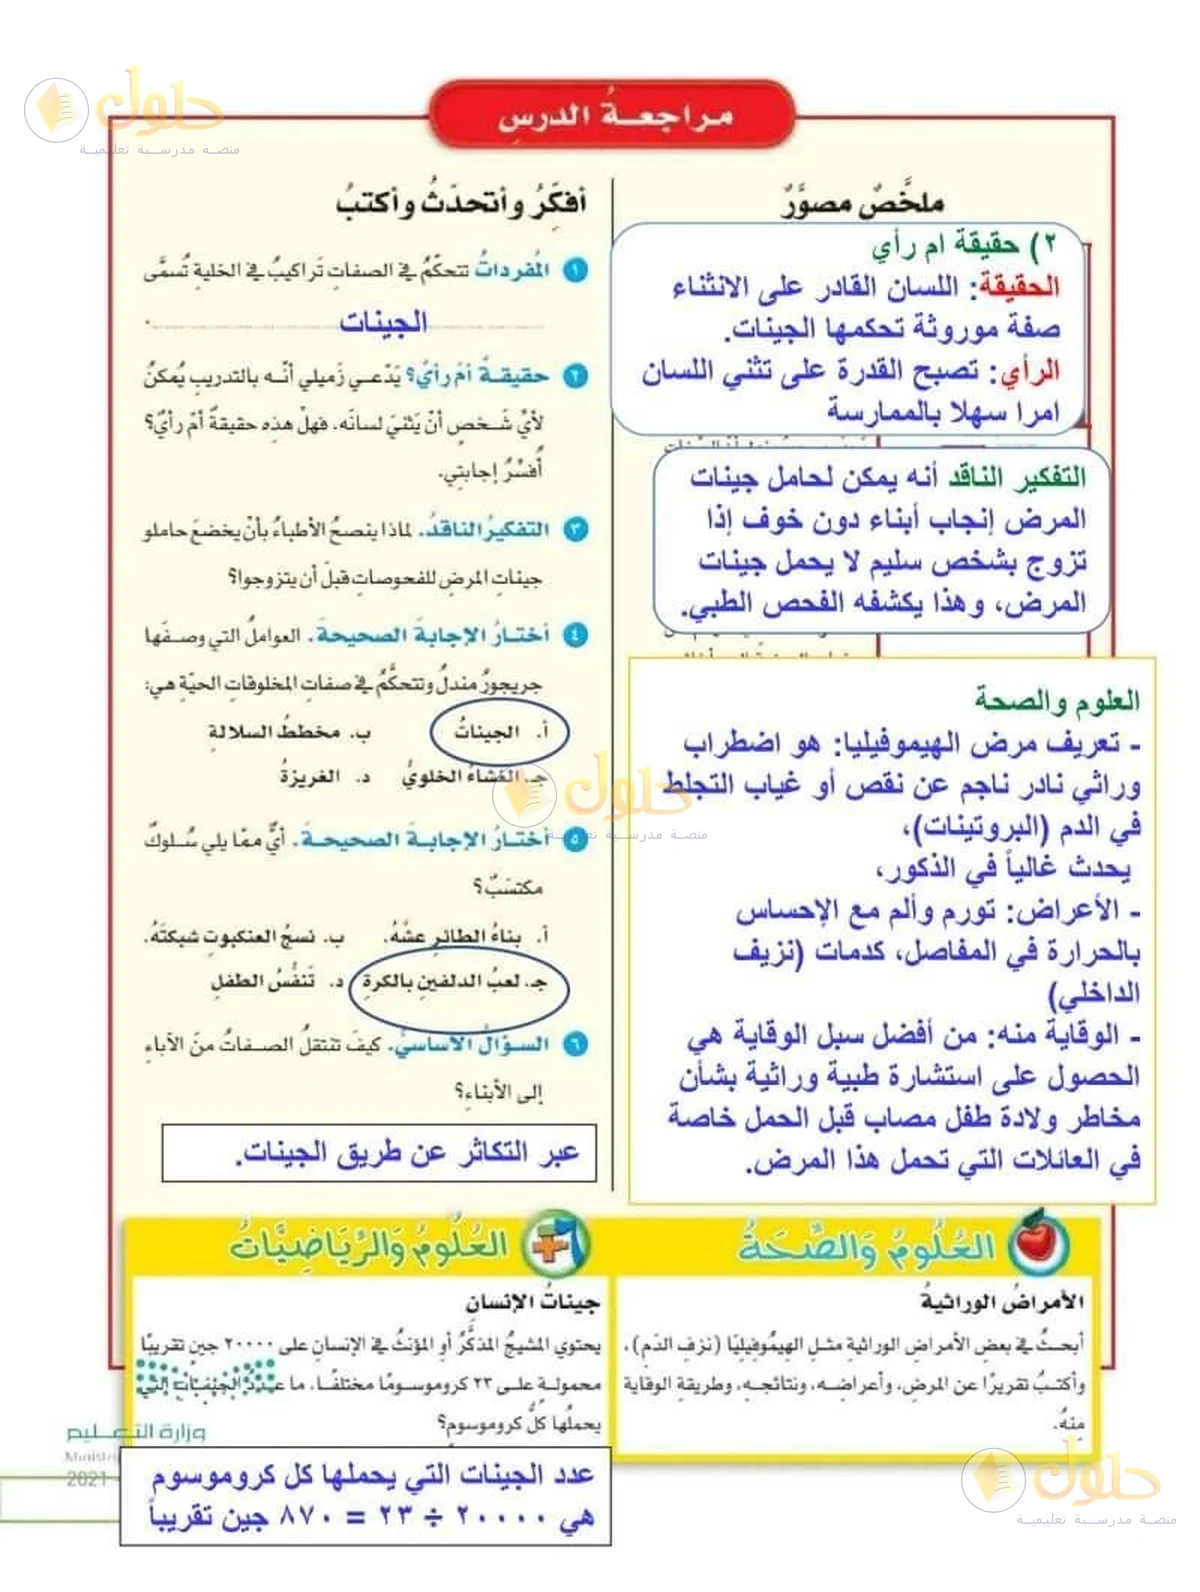 حلول
منصة مدرسية تعليمية
مراجعةُ الدرسِ
ملخَّصٌ مصوَّرٌ
٢) حقيقة ام رأي
الحقيقة: اللسان القادر على الانثناء
صفة موروثة تحكمها الجينات.
الرأي: تصبح القدرة على تثني اللسان
امرا سهلا بالممارسة
التفكير الناقد أنه يمكن لحامل جينات
المرض إنجاب أبناء دون خوف إذا
تزوج بشخص سليم لا يحمل جينات
المرض، وهذا يكشفه الفحص الطبي.
العلوم والصحة
- تعريف مرض الهيموفيليا: هو اضطراب
وراثي نادر ناجم عن نقص أو غياب التجلط
في الدم (البروتينات)،
يحدث غالياً في الذكور،
- الأعراض: تورم وألم مع الإحساس
بالحرارة في المفاصل، كدمات (نزيف
الداخلي)
- الوقاية منه: من أفضل سبل الوقاية هي
الحصول على استشارة طبية وراثية بشأن
مخاطر ولادة طفل مصاب قبل الحمل خاصة
في العائلات التي تحمل هذا المرض.
أفكِّرُ وأتحدّثُ وأكتبُ
١ المُفرداتُ تتحكّمُ في الصفاتِ تَراكيبُ في الخليةِ تُسمَّى
الجينات
٢ حقيقةٌ أمْ رأيٌ؟ يَدّعي زَميلي أنّه بالتدريبِ يُمكنُ
لأيِّ شَخصٍ أنْ يَثنيَ لسانَه. فهلْ هذه حقيقةٌ أمْ رأيٌ؟
أُفسِّرُ إجابتِي.
٣ التفكيرُ الناقدُ. لماذا ينصحُ الأطباءُ بأنْ يخضعَ حاملو
جيناتِ المرضِ للفحوصاتِ قبلَ أن يتزوجوا؟
٤ أختارُ الإجابةَ الصحيحةَ. العواملُ التي وصفَها
جريجورُ مندلُ وتتحكَّمُ في صفاتِ المخلوقاتِ الحيّةِ هي:
أ. الجيناتُ ب. مخططُ السلالةِ
جـ. الغشاءُ الخلويُّ د. الغريزةُ
حلول
منصة مدرسية تعليمية
٥ أختارُ الإجابةَ الصحيحةَ. أيٌّ ممّا يلي سُلوكٌ
مكتسَبٌ؟
أ. بناءُ الطائرِ عشَّهُ. ب. نسجُ العنكبوتِ شبكتَهُ.
جـ. لعبُ الدلفينِ بالكرةِ د. تَنفُّسُ الطفلِ
٦ السؤالُ الأساسيُّ. كيفَ تنتقلُ الصفاتُ منَ الآباءِ
إلى الأبناءِ؟
عبر التكاثر عن طريق الجينات.
العُلُومُ وَالصِّحَةُ
الأمراضُ الوراثيةُ
أبحثُ في بعضِ الأمراضِ الوراثيةِ مثلِ الهِيمُوفِيليَا (نزفِ الدَمِ)،
وأكتبُ تقريرًا عن المرضِ، وأعراضِه، ونتائجِه، وطريقةِ الوقايةِ
مِنهُ.
العُلُومُ وَالرِّيَاضِيَّاتُ
جيناتُ الإنسانِ
يحتوي المشيجُ المذكَّرُ أو المؤنثُ في الإنسانِ على ٢٠٠٠٠ جينٍ تقريبًا
محمولةٍ على ٢٣ كروموسومًا مختلفًا. ما عددُ الجيناتِ التي
يحملُها كلُّ كروموسومٍ؟
عدد الجينات التي يحملها كل كروموسوم
هي ٢٠٠٠٠ ÷ ٢٣ = ٨٧٠ جين تقريباً
وزارة التعليم
2021
حلول
منصة مدرسية تعليمية